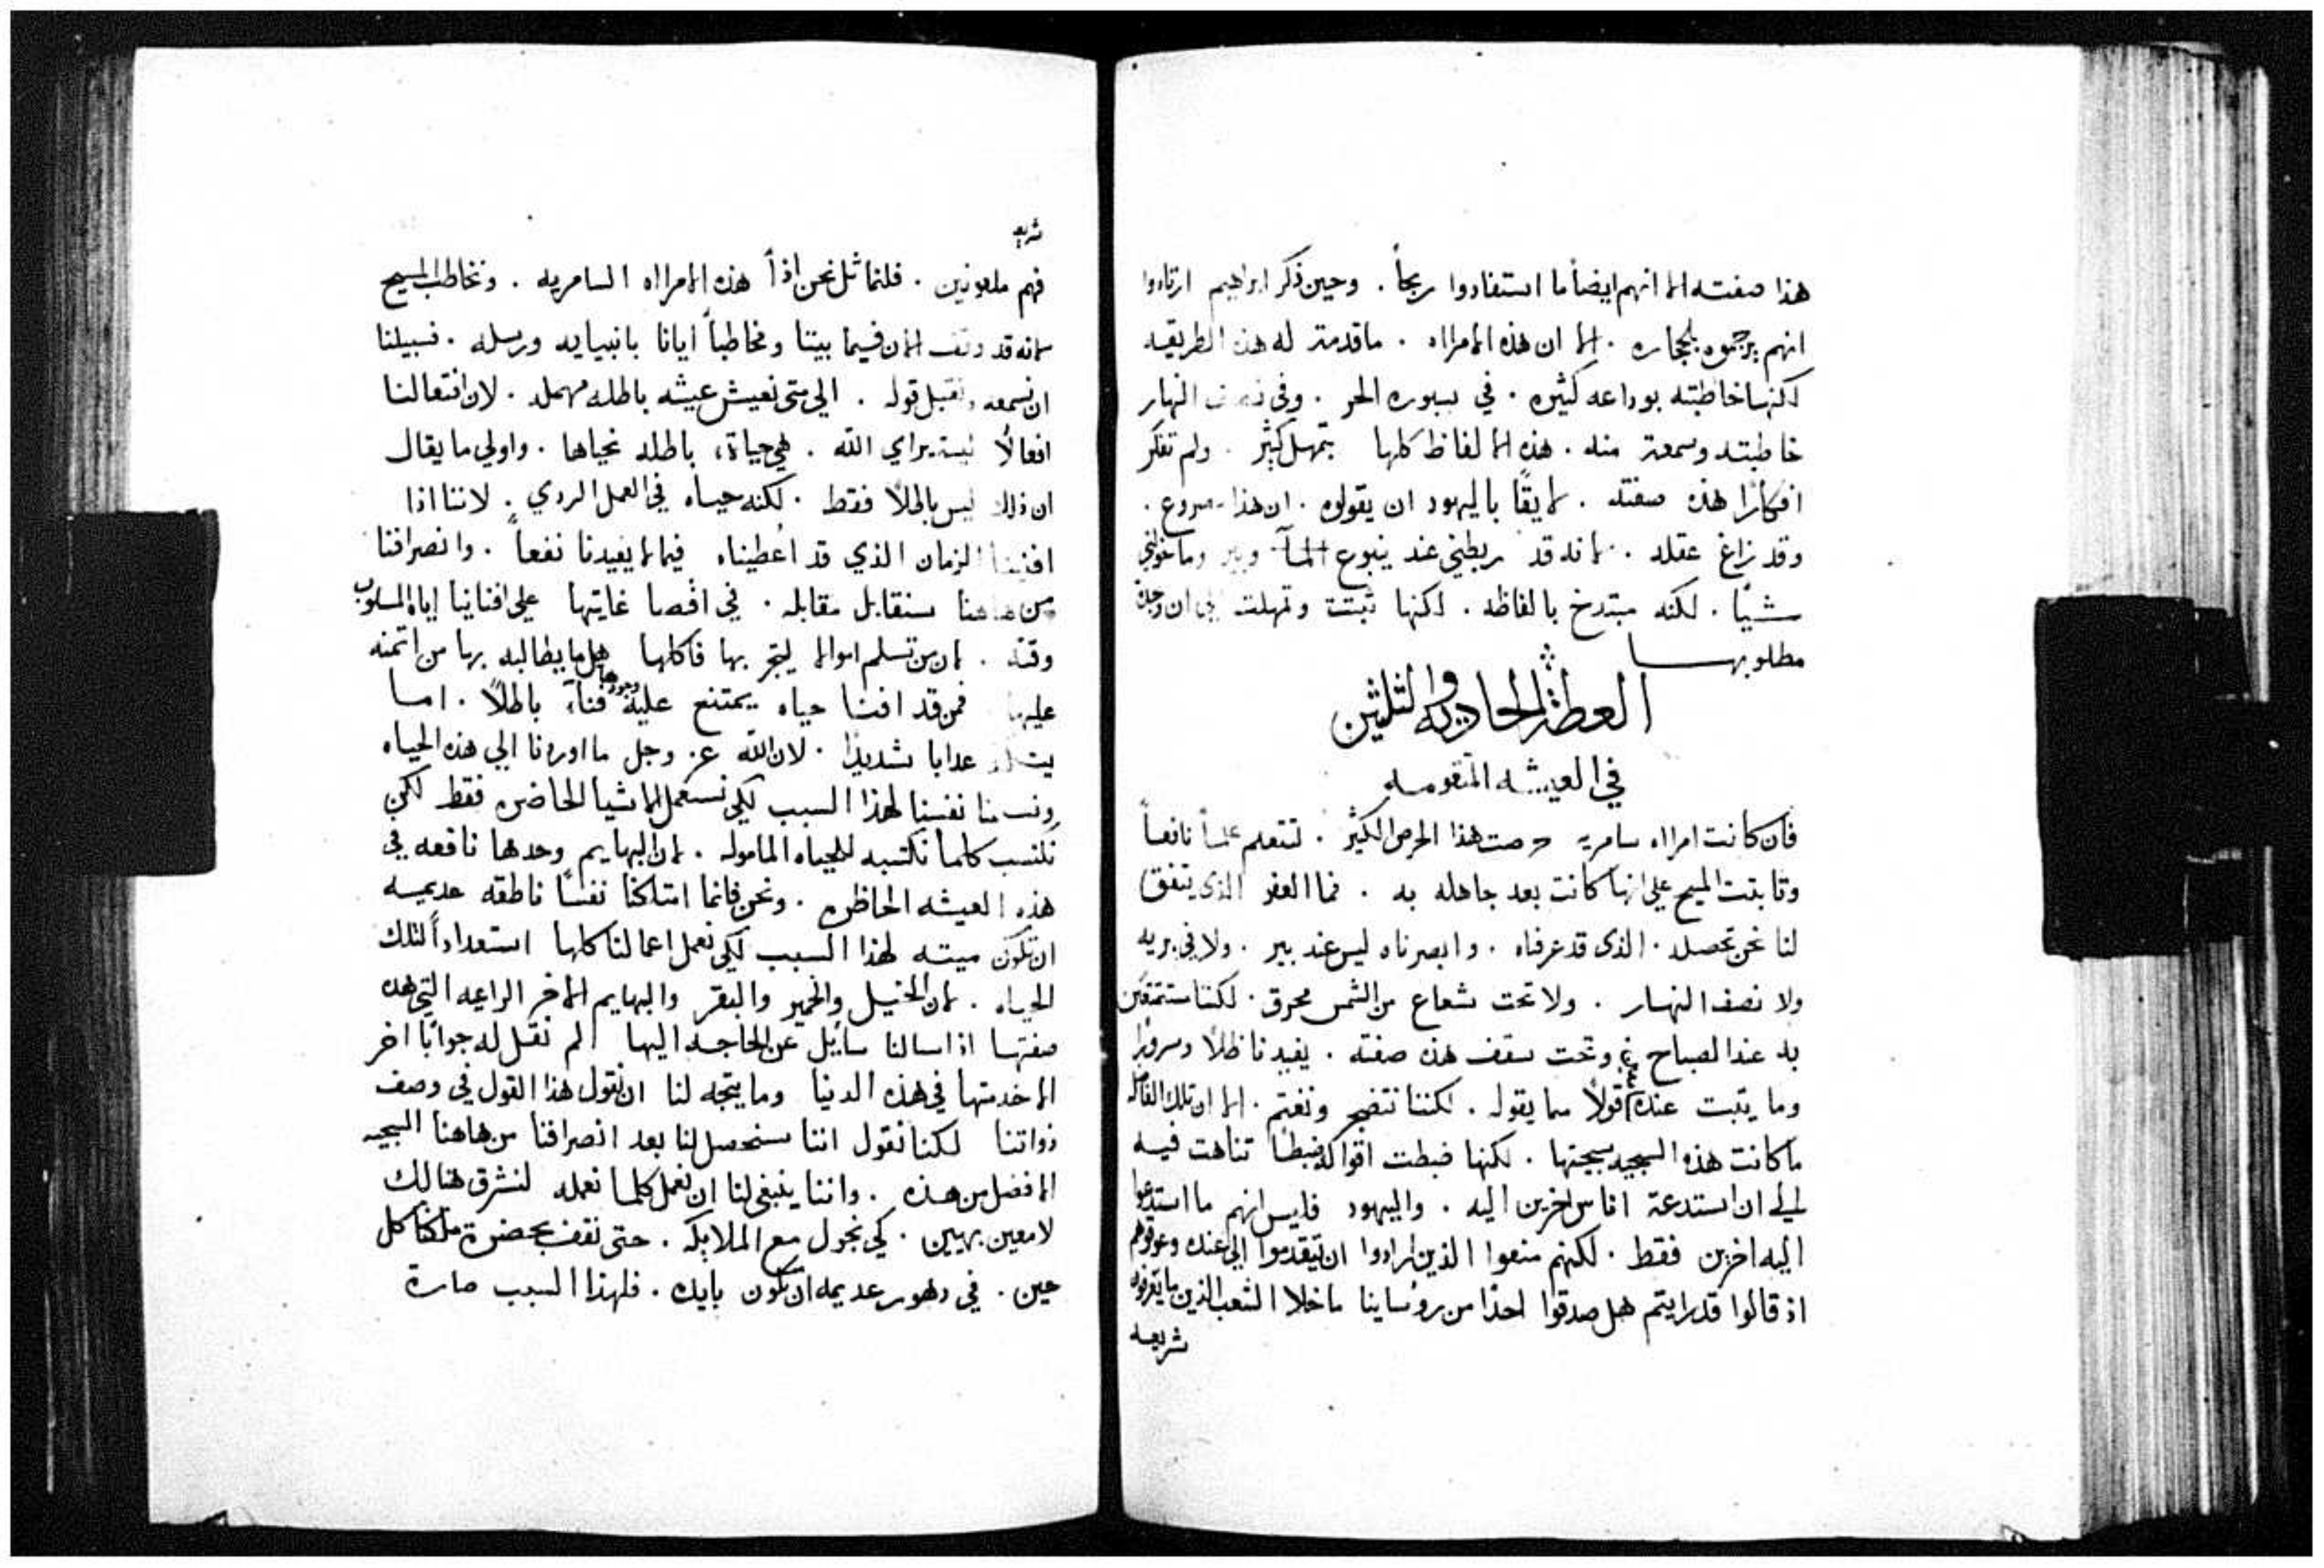 هذا صفته الا انهم ايضاً ما استفادوا ربحاً . وحين ذكر ابراهيم ارتادوا
انهم يرجموه بلحجاره . الا ان هذه الامرااه . ما قدمتر له هذه الطريقه
لكنها خاطبته بوداعه كثيره . في سبوره الحر . وفي نصف النهار
خاطبته وسمعة منه . هذه الالفاظ كلها بتمهل كثير . ولم تفكر
افكارًا هذه صفته . لايقًا باليهود ان يقولوه . ان هذا مصروع .
وقد زاغ عقله . لانه قد ربطني عند ينبوع المآ وبير وما خولني
شيًا . لكنه مبتدخ بالفاظه . لكنها ثبتت وتمهلت الى ان وجدة
مطلوبها
العظة الحاديه والثلثين
في العيشه المتقومه
فان كانت امرااه سامريه حرصت هذا الحرص الكثير . لتتعلم علماً نافعاً
وثابتت المسيح على انها كانت بعد جاهله به . فما العفو الذى يتفق
لنا نحن تحصله . الذى قد عرفناه . وابصرناه ليس عند بير . ولا في بريه
ولا نصف النهار . ولا تحت شعاع من الشمس محرق . لكننا ستمتعين
به عند الصباح وتحت سقف هذه صفته . يفيدنا ظلًا وسرورًا
وما يتبت عندنا قولًا مما يقوله . لكننا نتضجر ونغتم . الا ان تلك الفاضله
ما كانت هذه السجيه سجيتها . لكنها ضبطت اقواله ضبطًا تناهت فيه
الي ان استدعة اناس اخرين اليه . واليهود فليس انهم ما استدعوا
اليه اخرين فقط . لكنهم منعوا الذين ارادوا ان يتقدموا الى عنده وعوقوهم
اذ قالوا قد رايتم هل صدقوا احدًا من روُساينا ما خلا الشعب الذين ما يعرفون
شريعه
شريعه
فهم ملعونين . فلنماثل نحن اذاً هذه الامرااه السامريه . ونخاطب المسيح
لانه قد وقف الان فيما بيننا ومخاطباً ايانا بانبيايه ورسله . فسبيلنا
ان نسمعه ونقبل قوله . الي متى نعيش عيشه باطله مهمله . لان افتعالنا
افعالًا ليست براي الله . هي حياة باطله نحياها . واولي ما يقال
ان ذلك ليس باطلًا فقط . لكنه حياه في العمل الردي . لاننا اذا
افنينا الزمان الذي قد اعُطيناه فيما لا يفيدنا نفعاً . وانصرافنا
من هاهنا سنقابل مقابله . في اقصا غايتها على افنانينا اياه المسلوب
وقته . لان من تسلم اموالا ليتجر بها فاكلها هل ما يطالبه بها من اتمنه
عليها فمن قد افنا حياه يمتنع عليه وجودها فناءً باطلًا . اما
يتكبد عدابا شديدًا . لان الله عز وجل ما اوردنا الي هذه الحياه
ونسمنا نفسنا لهذا السبب لكى نستعمل الاشيا الحاضره فقط لكن
نكتسب كلما نكتسبه للحياه المامولة . لان البهايم وحدها نافعه في
هذه العيشه الحاظره . ونحن فانما امتلكنا نفسًا ناطقه عديمه
ان تكون ميته لهذا السبب لكى نعمل اعمالنا كلها استعداداً لتلك
الحياه . لان الخيل والحمير والبقر والبهايم الاخر الراعيه التي هذه
صفتها اذا سالنا سايل عن الحاجه اليها لم نقل له جوابًا اخر
الا خدمتها في هذه الدنيا وما يتجه لنا ان نقول هذا القول في وصف
ذواتنا لكنا نقول اننا سنحصل لنا بعد انصرافنا من هاهنا السجيه
الافضل من هذه . واننا ينبغي لنا ان نعمل كلما نعمله لنشرق هنالك
لامعين بهيين . كي نجول مع الملايكه . حتى نقف بحضرة ملكنا كل
حين . في دهور عديمه ان تكون بايده . فلهذا السبب صارة